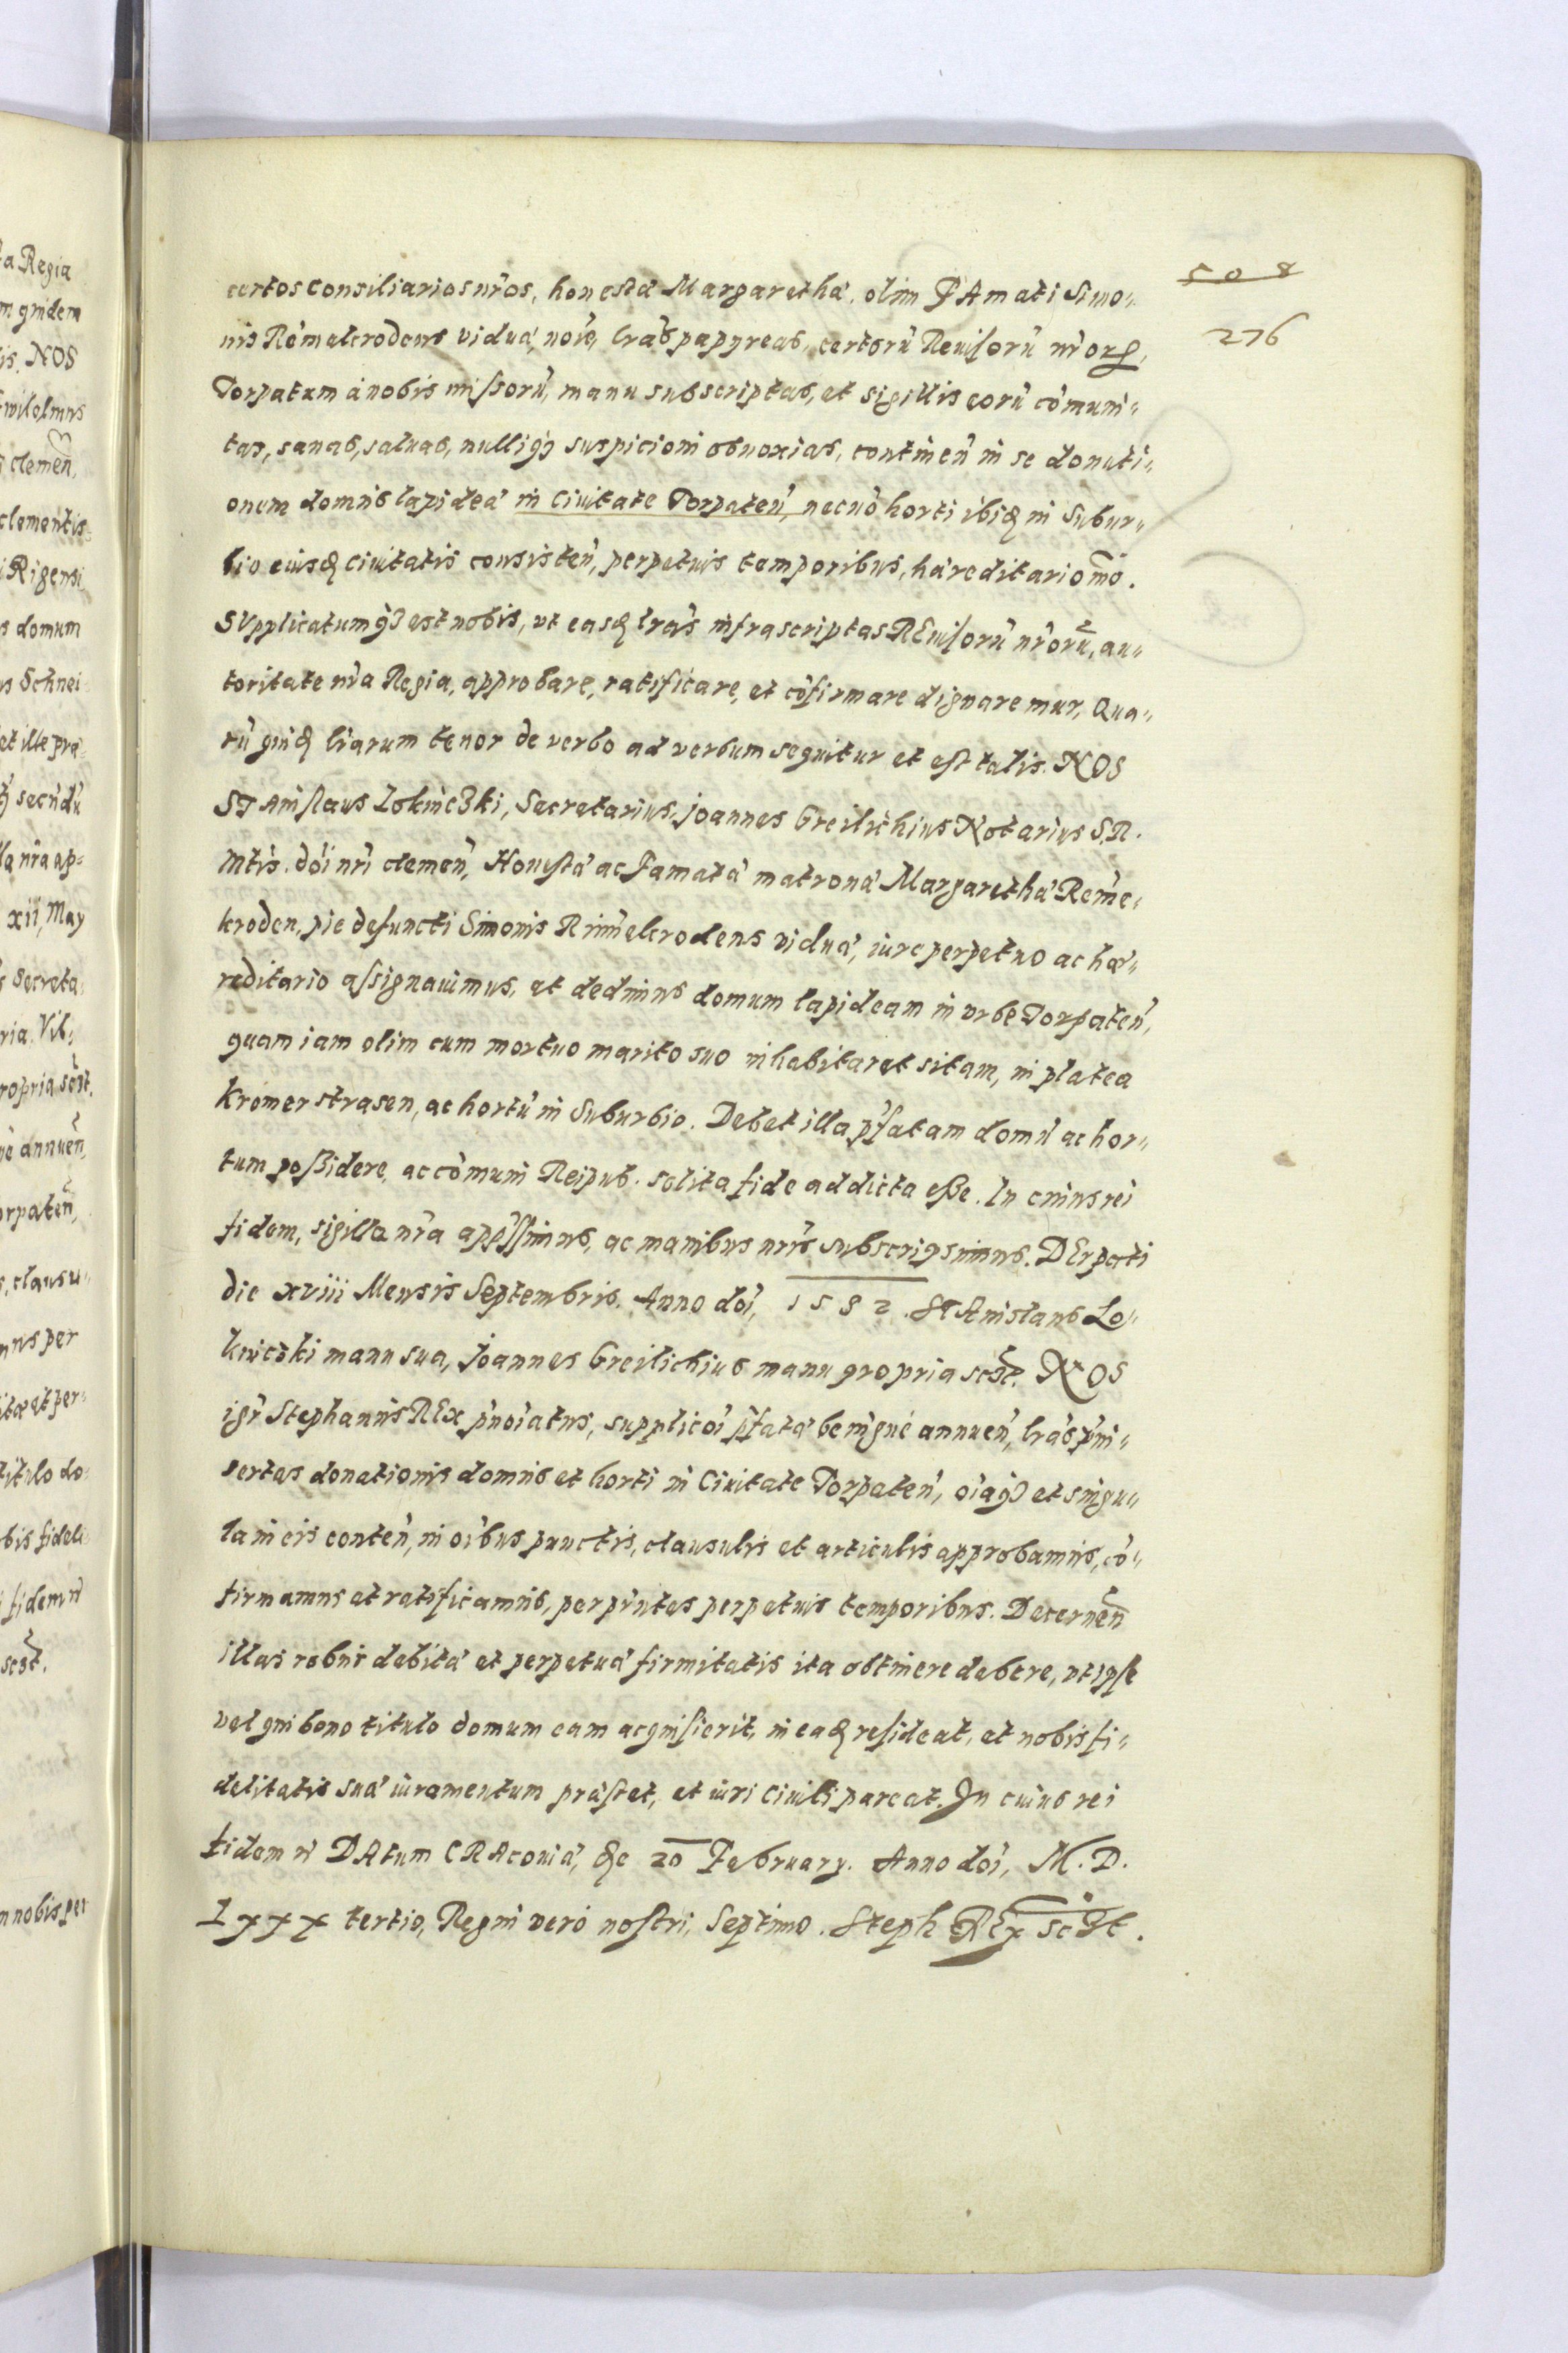 508
276
certos Consiliarios nr̃os, honestæ Margarethæ, olim FAmati Simo„
nis Rem̃elcrodens viduæ, noĩe, lrãs papyreas, certorũ Reuisorũ nr̃orꝝ,
Torpatum à nobis missorũ, manu subscriptas, et sigillis eorũ cõmuni„
tas, sanas, saluas, nulliqꝫ suspicioni obnoxias, continen̄ in se donati„
onem domus lapideæ in Ciuitate Torpaten̄, necnõ horti ibiđ in Subur„
bio eiusđ Ciuitatis consisten̄, perpetuis temporibus, hæreditario mõ.
SVpplicatumqꝫ est nobis, vt easđ lrãs infrascriptas REuisorũ nr̃orũ, au„
toritate nr̃a Regia, approbare, ratificare, et cõfirmare dignaremur, Qua„
rũ quiđ lr̃arum tenor de verbo ad verbum sequitur et est talis. NOS
STAnislaus Lokniczki, Secretarius, Joannes Greilichius Notarius S. R.
Mtis. dñi nr̃i clemen̄, Honestæ ac Famatæ matronæ Margarethæ Rem̃e„
kroden, pie defuncti Simonis Rim̃elcrodens viduæ, iure perpetuo ac hæ„
reditario assignauimus, et dedimus domum lapideam in vrbe Torpaten̄,
quam iam olim cum mortuo marito suo inhabitaret sitam, in platea
Kromerstrasen, ac hortũ in Suburbio. Debet illa p̃fatam domũ ac hor„
tum poßidere, ac cõmuni Reipub. solita fide addicta eße. In cuius rei
fidem, sigilla nr̃a app̃ssimus, ac manibus nr̃is subscripsimus. DErpati
die xviii Mensis Septembris. Anno dñi, 1582. STAnislaus Lo„
kniczki manu sua, Joannes Greilichius manu propria scꝫt. NOS
igr̃ Stephanus REx p̃noĩatus, supplicõi p̃fatæ benigne annuen̄, lrãs p̃in„
sertas donationis domus et horti in Ciuitate Torpaten̄, oĩaqꝫ et singu„
la in eis conten̄, in oĩbus punctis, clausulis et articulis approbamus, cõ„
firmamus et ratificamus, per p̃ntes perpetuis temporibus. Decernen̄
illas robur debitæ et perpetuæ firmitatis ita obtinere debere, vt ipse
vel qui bono titulo domum eam acquisierit, in eađ resideat, et nobis fi„
delitatis suæ iuramentum præstet, et iuri Ciuili pareat. In cuius rei
fidem ñ DAtum CRAcouiæ, đe 20 February. Anno dñi, M. D.
Lxxx tertio, Regni vero nostri, Septimo. Steph REx scꝫt.